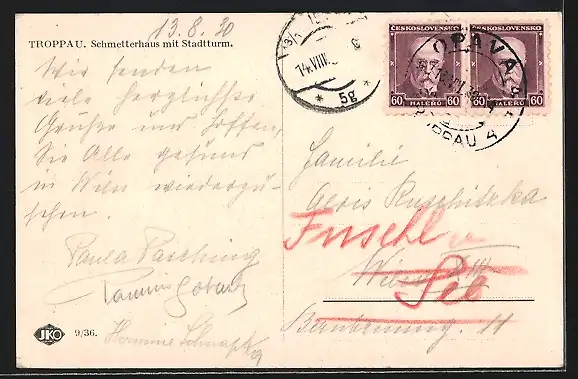 13.8.30
TROPPAU. Schmetterhaus mit Stadtturm.
Wir senden
viele herzlichste
Grüsse und hoffen,
Sie Alle gesund
in Wien wiederzu-
sehen.
Paula Pasching
Hermine
JKO
9/36.
13/1
14.VIII.
* 5g *
ČESKOSLOVENSKO
60 HALÉŘŮ 60
ČESKOSLOVENSKO
60 HALÉŘŮ 60
OPAVA 4
TROPPAU 4
Familie
Alois Ruschitzka
Fuschl a
Wien XIII
See
11